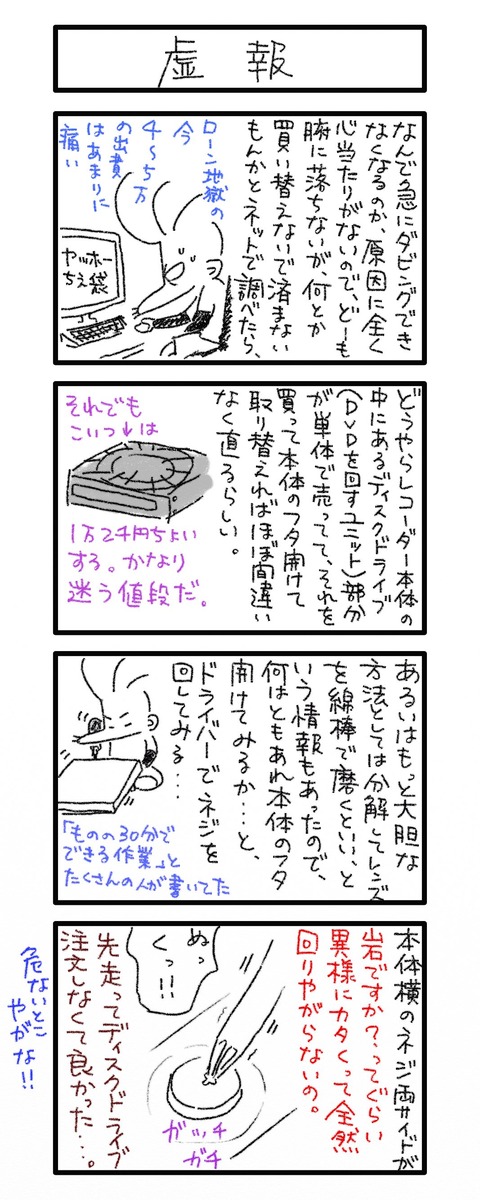 虚報
なんで急にダビングでき
なくなるのか、原因に全く
心当たりがないので、どーも
腑に落ちないが、何とか
買い替えないで済まない
もんかとネットで調べたら、
ローン地獄の
今
4〜5万
の出費
はあまりに
痛い
ヤッホー
ちえ袋
どうやらレコーダー本体の
中にあるディスクドライブ
(DVDを回すユニット)部分
が単体で売ってて、それを
買って本体のフタ開けて
取り替えればほぼ間違い
なく直るらしい。
それでも
こいつ↓は
1万2千円ちょい
する。かなり
迷う値段だ。
あるいはもっと大胆な
方法としては分解してレンズ
を綿棒で磨くといい、と
いう情報もあったので、
何はともあれ本体のフタ
開けてみるか…と、
ドライバーでネジを
回してみる...
「ものの30分で
できる作業」と
たくさんの人が書いてた
本体横のネジ両サイドが
岩ですか?ってぐらい
異様にカタくって全然
回りやがらないの。
ぬっ
くっ!!
ガッチ
ガチ
先走ってディスクドライブ
注文しなくて良かった...。
危ないとこ
やがな!!